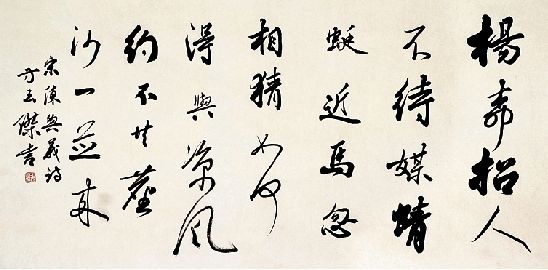 楊柳招人
不待媒蜻
蜓近馬忽
相猜如何
得與凉風
約不共塵
沙一並來
宋陳與義詩
傑書